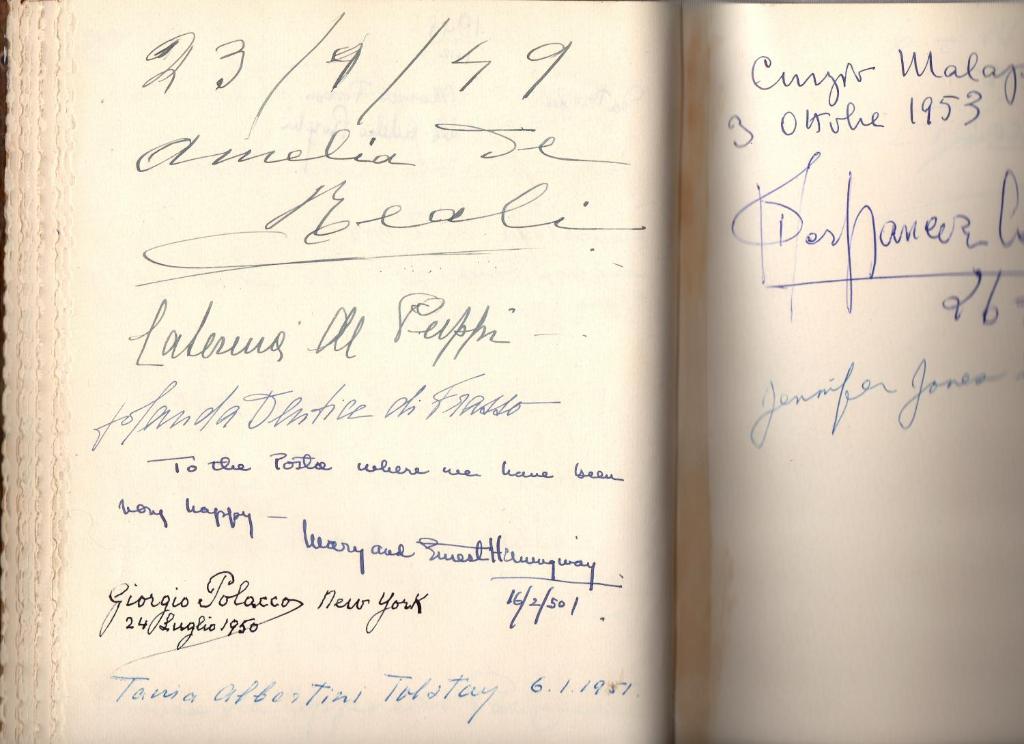 23/9/49
Amelia De
Reali
Caterina de Puppi
Jolanda Dentice di Frasso
To the Posta where we have been
very happy –
Mary and Ernest Hemingway
16/2/50
Giorgio Polacco New York
24 Luglio 1950
Tania Albertini Tolstoy 6.1.1951
Curzio Malap
3 Ottobre 1953
26
Jennifer Jones